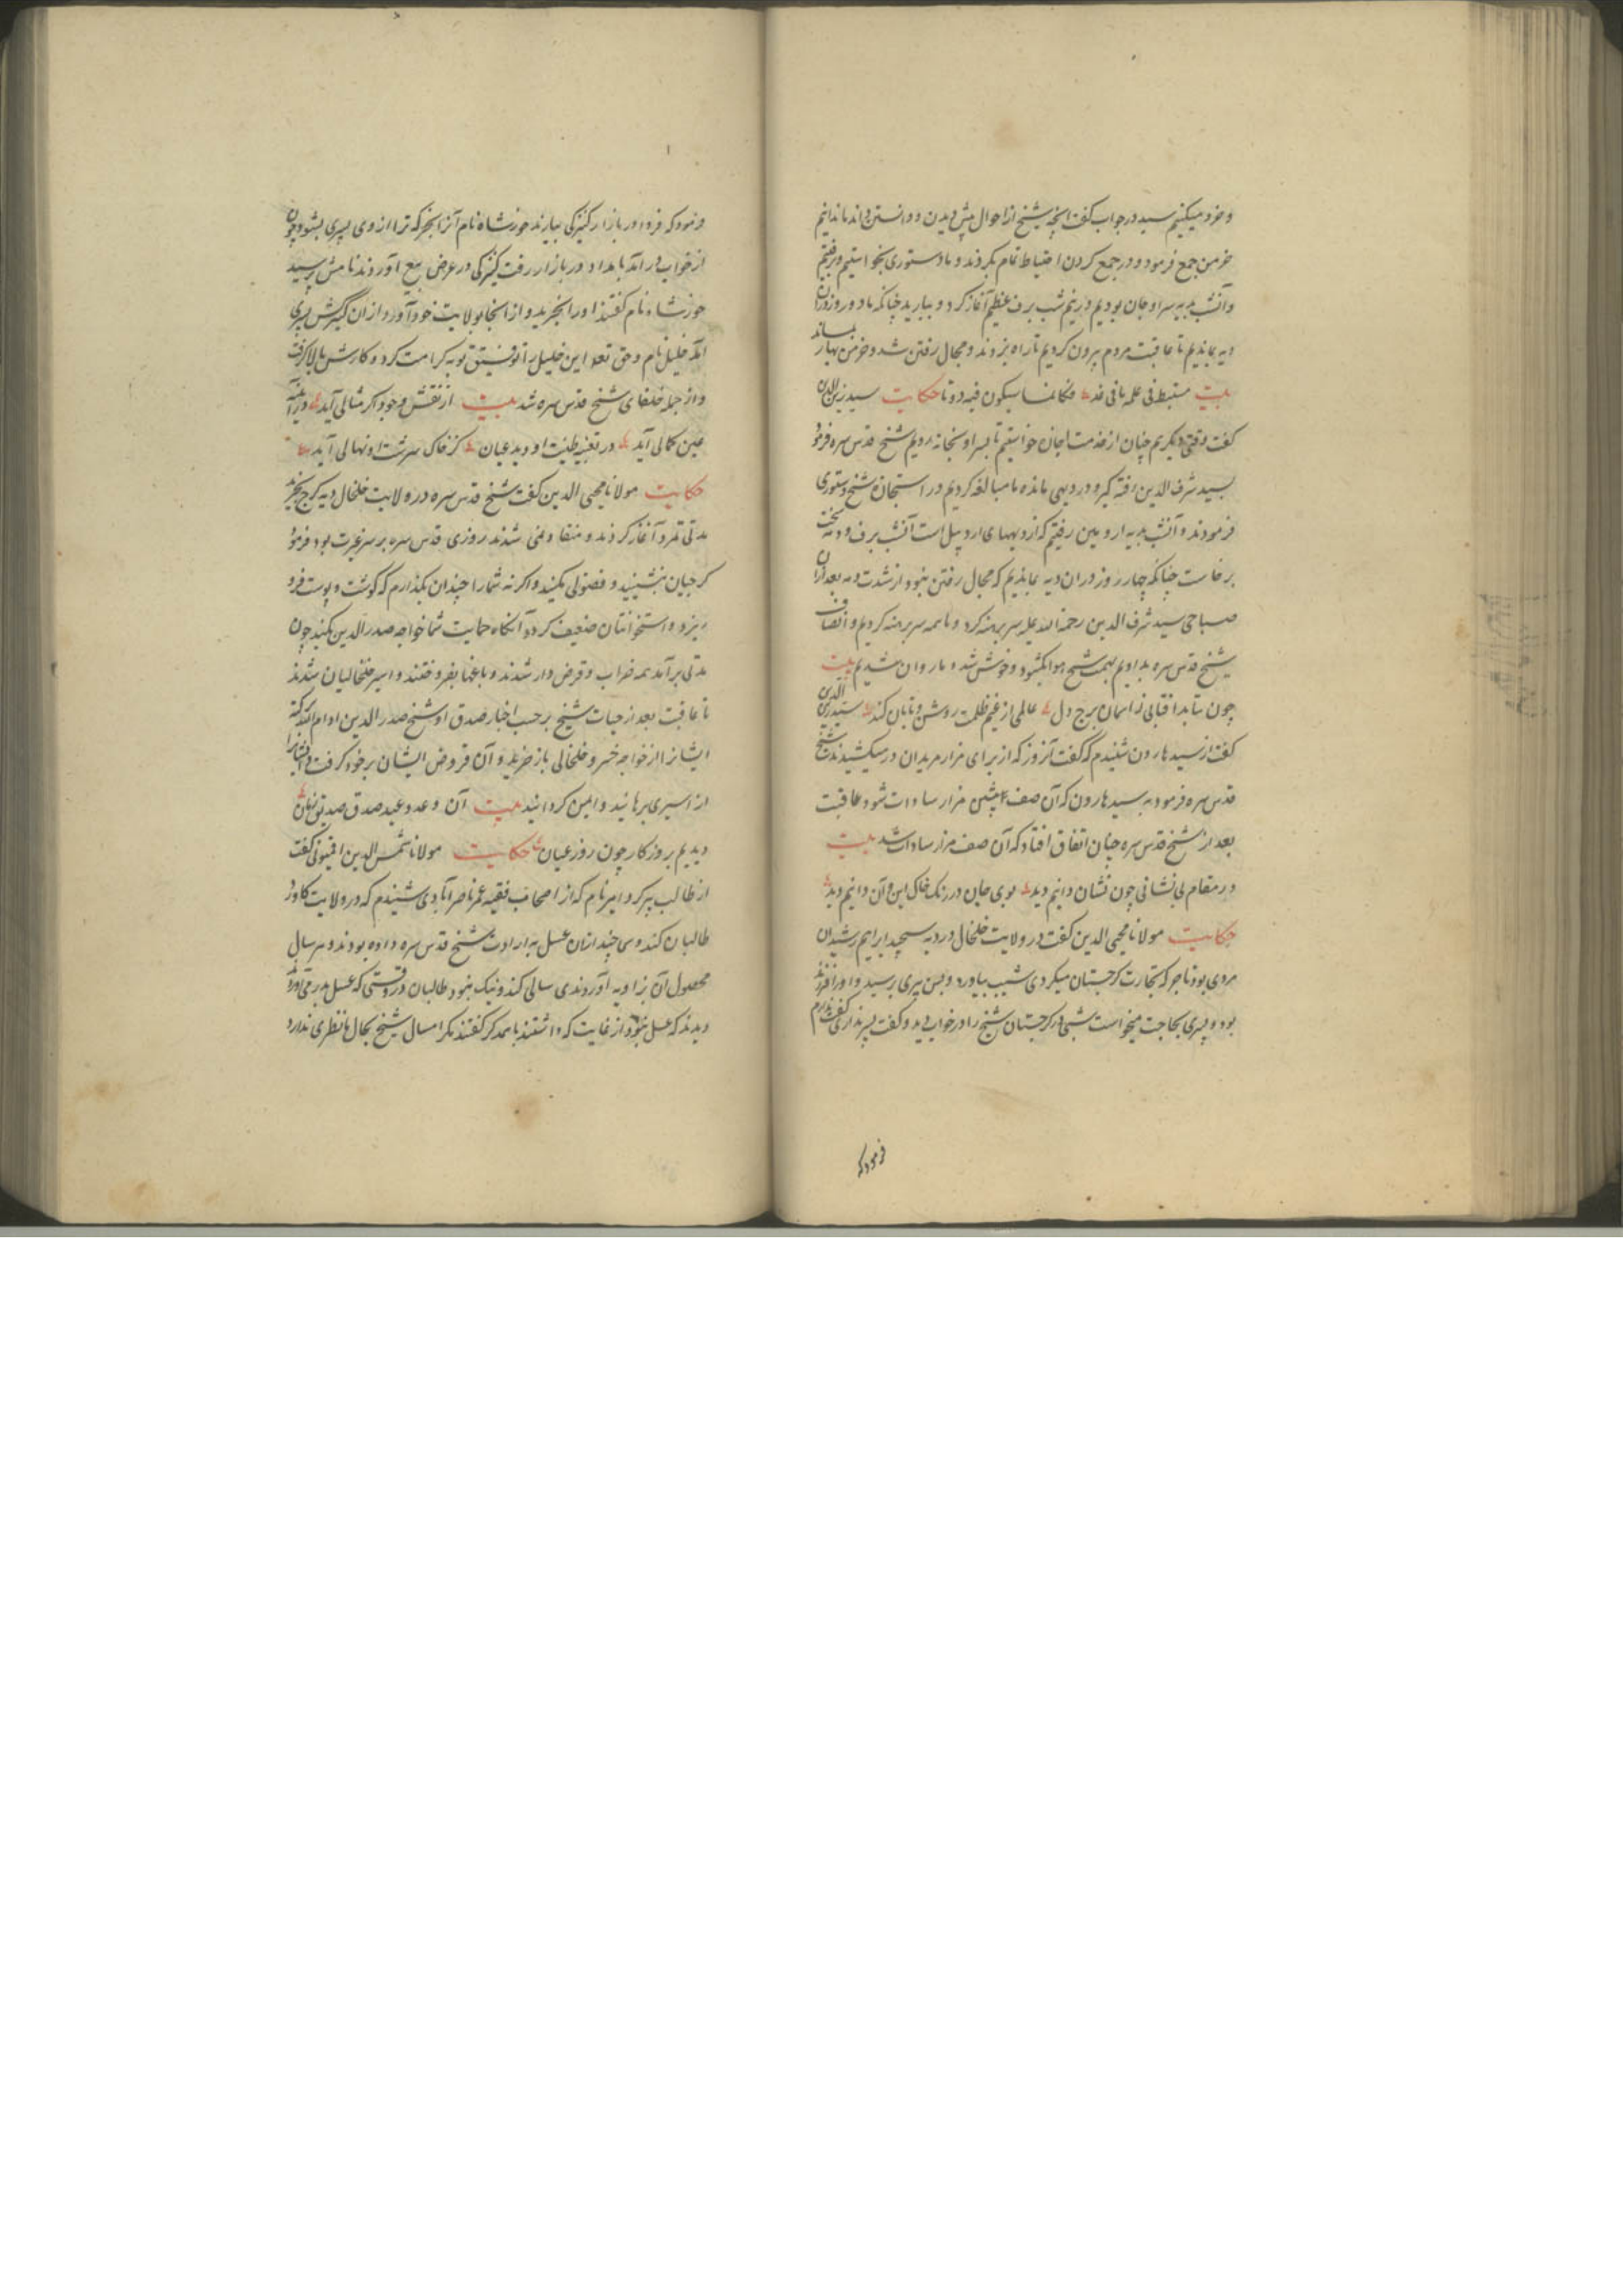 و خرد میکنیم سید در جواب گفت انچه شیخ از احوال پیش دیدن و دانستن داند ما ندانیم
خرمن جمع فرمود و در جمع کردن احتیاط تمام بکردند و ما دستوری بخواستیم و برفتیم
و آنشب بدیه سراوجان بودیم در نیم شب برف عظیم آغاز کرد و ببارید چنانکه ما دو روز در آن
دیه بماندیم تا عاقبت مردم بیرون کردیم تا راه بزدند و مجال رفتن شد و خرمن بهار بماند
بیت مستبط فی علمه باقی غد فکانما سیکون فیه دونا حکایت سید زین الدین
گفت وقتی دیگر هم چنان از خدمت اجازت خواستیم تا بسراو بخانه رویم شیخ قدس سره فرمود
سید شرف الدین رفته گیر و در دیهی مانده ما مبالغه کردیم در استجازه شیخ دستوری
فرمودند و آنشب بدیه اروبین رفتیم که از دیههای اردبیل است آنشب برف و دمه سخت
برخاست چنانکه چهار روز در ان دیه بماندیم که مجال رفتن نبود از شدت دمه بعد از آن
صباحی سید شرف الدین رحمة الله علیه سر برهنه کرد و ما همه سر برهنه کردیم و انصاف
شیخ قدس سره بدادیم بهمت شیخ هوا بگشود و خوش شد و ما روان شدیم بیت
چون بتابد آفتابی ز اسمان برج دل عالمی از غیم ظلمت روشن و تابان کند سید زین الدین
گفت از سید هارون شنیدم که گفت آنروز که از برای مزار مریدان در میکشیدند شیخ
قدس سره فرمود به سید هارون که آن صف پیشین مزار سادات شود عاقبت
بعد از شیخ قدس سره چنان اتفاق افتاد که آن صف مزار سادات شد بیت
در مقام بی نشانی چون نشان دانیم دید بوی جان در رنگ خاک این و آن دانیم دید
حکایت مولانا محیی الدین گفت در ولایت خلخال در دیه سجید ابراهیم رشیدان
مردی بود تاجر که تجارت گرجستان میکردی شیب بیاورد و بسن پیری رسید و او را فرزند
بود و پسری بحاجت میخواست شبی در گرجستان شیخ را در خواب دید و گفت پسر نداری گفت ندارم
فرمود که
فرمود که فردا در بازار کنیزکی بیارند حورشاه نام آنرا بخر که ترا از وی پسری بشود چون
از خواب در آمد بامداد در بازار رفت کنیزکی در عرض بیع آوردند نامش پرسید
حورشاه نام گفتند او را بخرید و از انجا بولایت خود آورد از ان کنیزکش پسری
آمد خلیل نام و حق تعالی این خلیل را توفیق توبه کرامت کرد و کارش بالا گرفت
و از جمله خلفای شیخ قدس سره شد بیت از نقش وجود اگر مثالی آید در آینه
عین کمالی آید در تعبیه طینت او دید عیان کز خاک سرشت او نهالی آید
حکایت مولانا محیی الدین گفت شیخ قدس سره در ولایت خلخال دیه کرج بخرید
مدتی تمرد آغاز کردند و منقاد نمی شدند روزی قدس سره بر سر غیرت بود فرمود
کرجیان بنشینید و فضولی مکنید و اگر نه شما را چندان بگذارم که گوشت و پوست فرو
ریزد و استخوانتان ضعیف گردد آنگاه حمایت شما خواجه صدر الدین بکند چون
مدتی بر آمد همه خراب و قرض دار شدند و باغها بفروختند و اسیر خلخالیان شدند
تا عاقبت بعد از حیات شیخ بر حسب اخبار صدق او شیخ صدر الدین ادام الله برکته
ایشانرا از خواجه خسرو خلخالی باز خرید و آن قروض ایشان بر خود گرفت و ایشانرا
از اسیری برهانید و ایمن گردانید بیت آن وعد و وعید صدق صدیق زمان
دیدیم بروزگار چون روز عیان حکایت مولانا شمس الدین گفت
از طالب پیر کرد امیر نام که از اصحاب فقیه عمر ناصرآبادی شنیدم که در ولایت کاورد
طالبان کندوی چند از ان عسل به ارادت شیخ قدس سره داده بودند و هر سال
محصول آن بزاویه آوردندی سالی کندو نیک نبود طالبان در وقتی که عسل بدر می آوردند
دیدند که عسل نبود از غایت که داشتند با همدگر گفتند مگر امسال شیخ بحال ما نظری ندارد